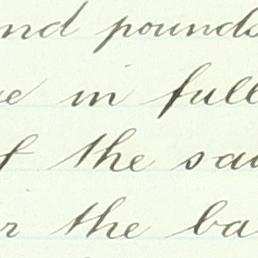 nd pounds
e in full
f the sa
r the ba